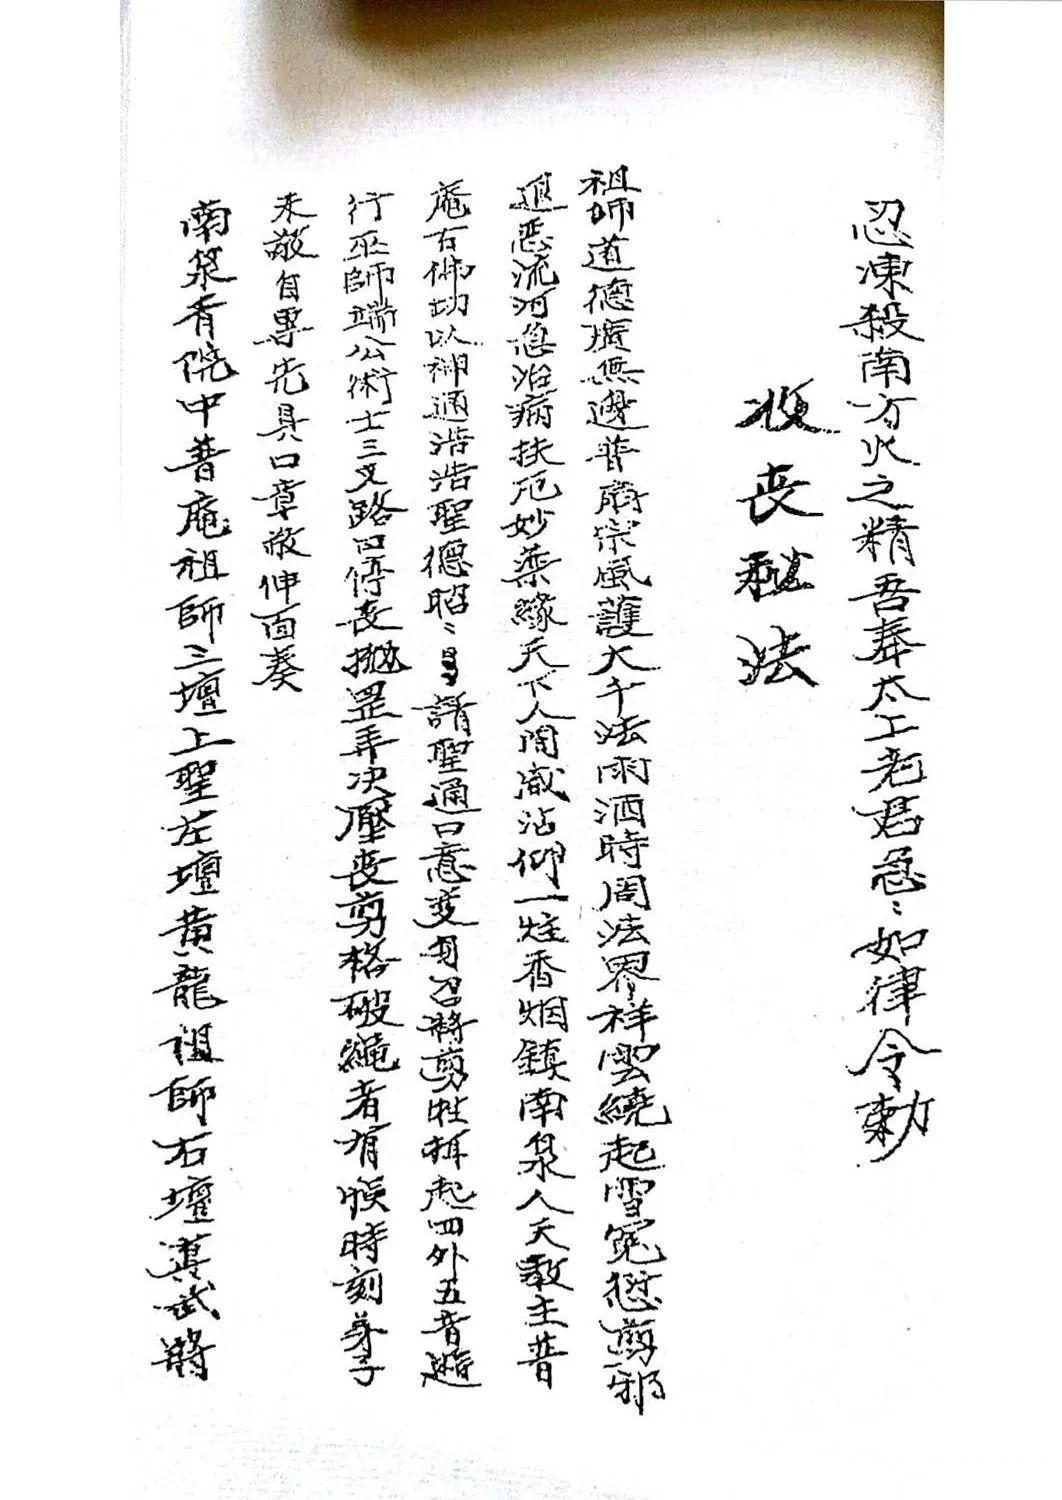 忍凍殺南方火之精吾奉太上老君急〻如律令勅
收喪秘法
祖師道德廣無邊普庵宗風護大千法雨洒時周法界祥雲繞起雪冤愆剪邪
退惡流河息治病扶厄妙藥緣天下人間咸沾仰一炷香烟鎮南泉人天教主普
庵古佛切以神通浩浩聖德昭〻請聖通口意变身召將剪牲抵起四外五音遊
行巫師端公術士三叉路口停喪拋罡弄决壓喪剪格破繩者有候時刻弟子
未敢自專先具口章敬伸面奏
南泉香院中普庵祖師三壇上聖左壇黄龍祖師右壇真武將